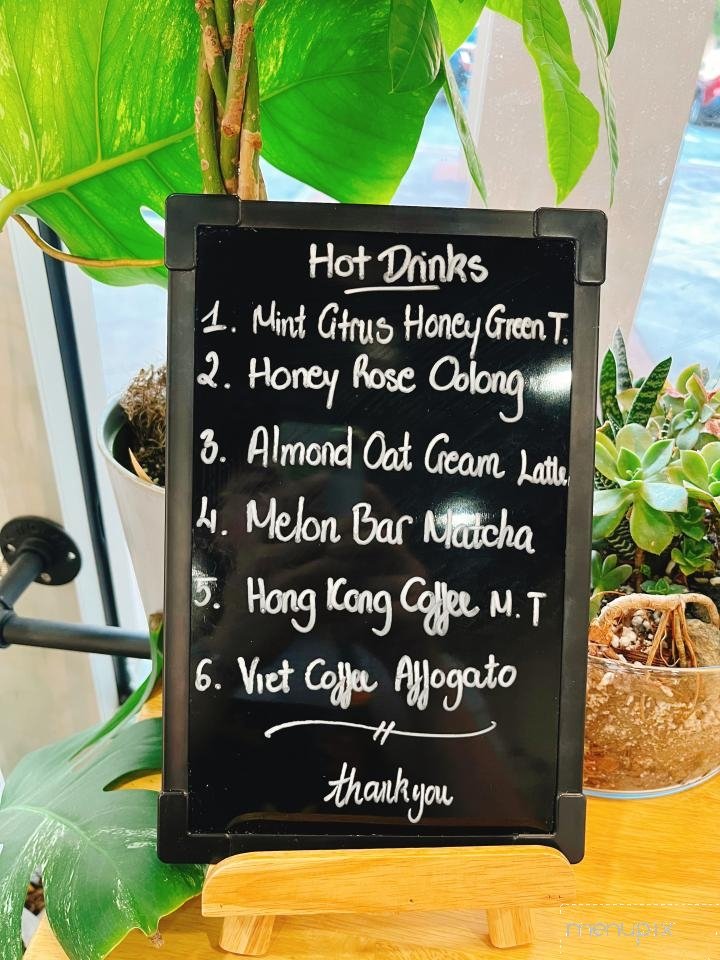 Hot Drinks
1. Mint Citrus Honey Green T.
2. Honey Rose Oolong
3. Almond Oat Cream Latte
4. Melon Bar Matcha
5. Hong Kong Coffee M.T
6. Viet Coffee Affogato
thank you
menupix